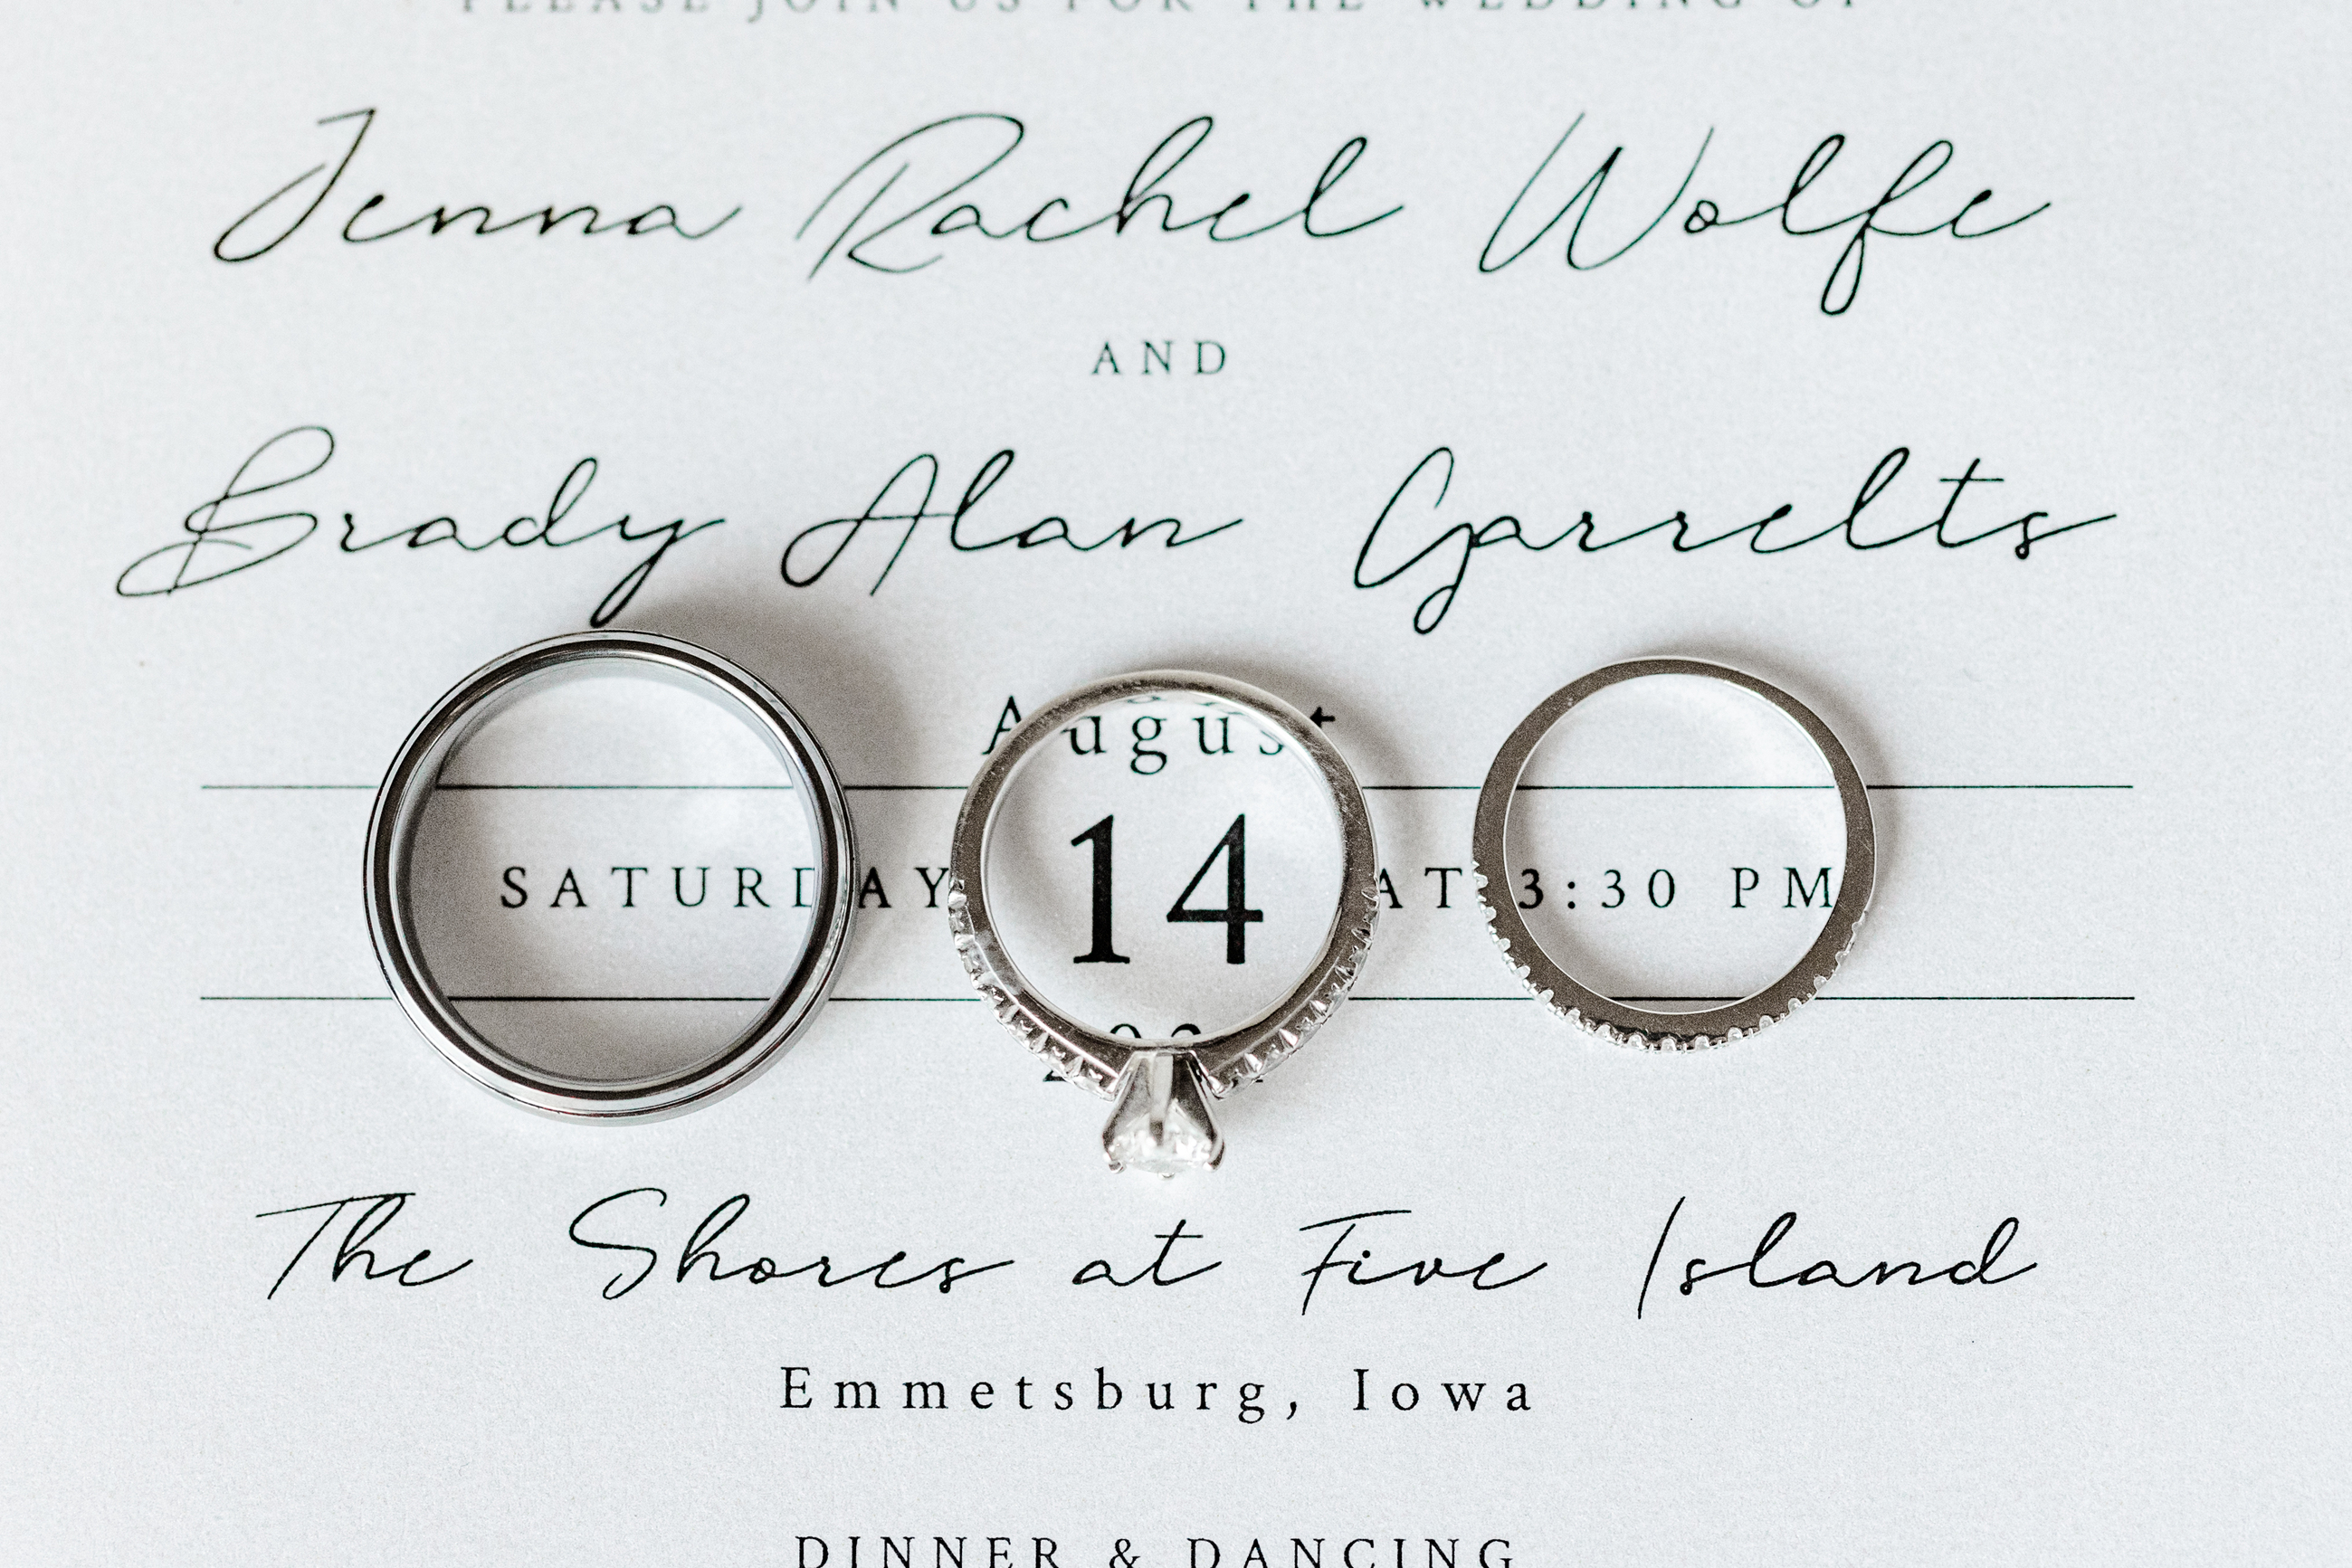 PLEASE JOIN US FOR THE WEDDING OF
Jenna Rachel Wolfe
AND
Brady Alan Garrelts
August
SATURDAY 14 AT 3:30 PM
The Shores at Five Island
Emmetsburg, Iowa
DINNER & DANCING